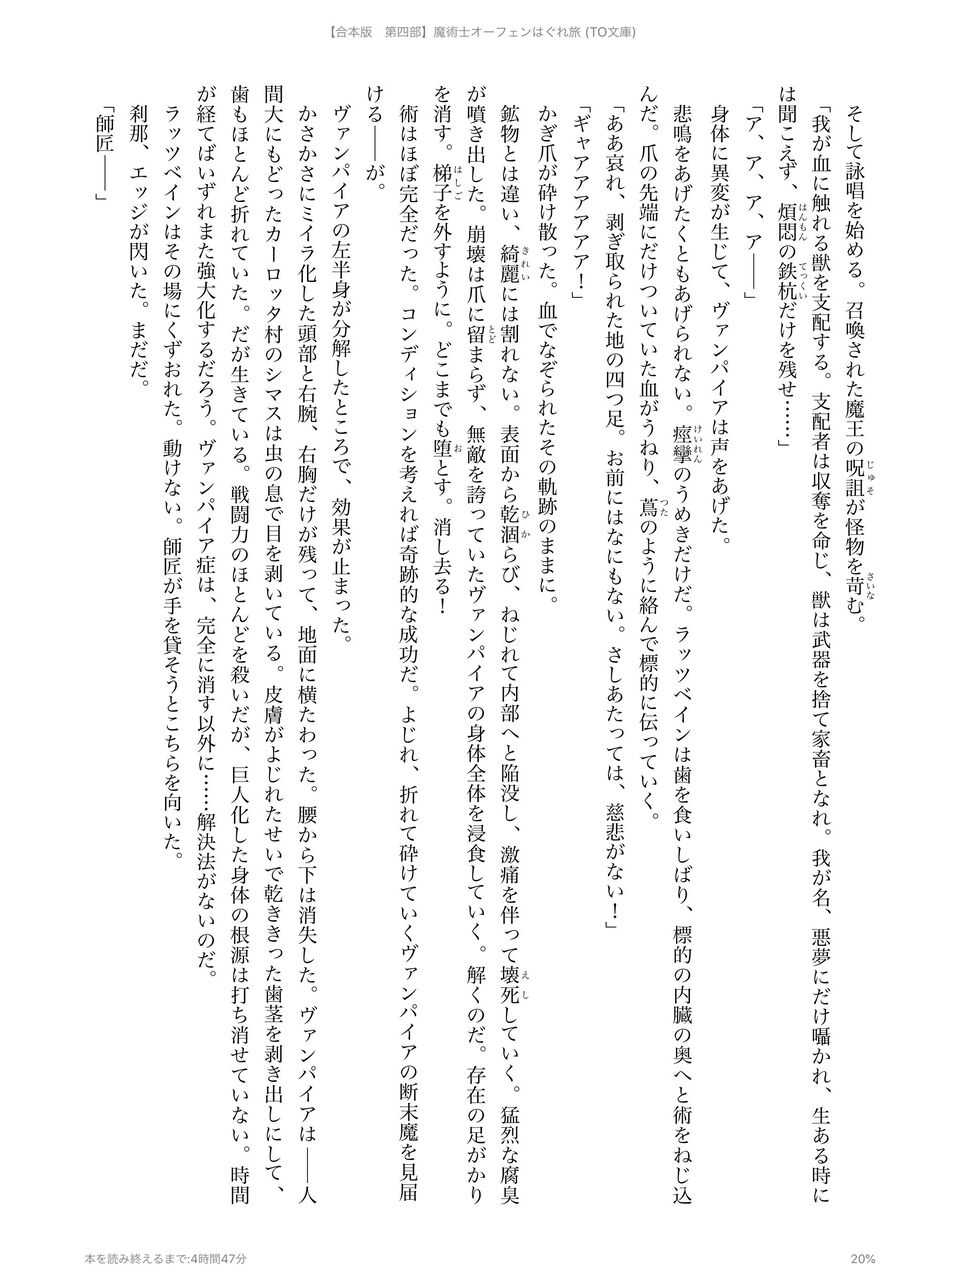 【合本版　第四部】魔術士オーフェンはぐれ旅 (TO文庫)
そして詠唱を始める。召喚された魔王の呪詛が怪物を苛む。
「我が血に触れる獣を支配する。支配者は収奪を命じ、獣は武器を捨て家畜となれ。我が名、悪夢にだけ囁かれ、生ある時に
は聞こえず、煩悶の鉄杭だけを残せ……」
「ア、ア、ア、ア――」
身体に異変が生じて、ヴァンパイアは声をあげた。
悲鳴をあげたくともあげられない。痙攣のうめきだけだ。ラッツベインは歯を食いしばり、標的の内臓の奥へと術をねじ込
んだ。爪の先端にだけついていた血がうねり、蔦のように絡んで標的に伝っていく。
「ああ哀れ、剥ぎ取られた地の四つ足。お前にはなにもない。さしあたっては、慈悲がない！」
「ギャアアアアアア！」
かぎ爪が砕け散った。血でなぞられたその軌跡のままに。
鉱物とは違い、綺麗には割れない。表面から乾涸らび、ねじれて内部へと陥没し、激痛を伴って壊死していく。猛烈な腐臭
が噴き出した。崩壊は爪に留まらず、無敵を誇っていたヴァンパイアの身体全体を浸食していく。解くのだ。存在の足がかり
を消す。梯子を外すように。どこまでも堕とす。消し去る！
術はほぼ完全だった。コンディションを考えれば奇跡的な成功だ。よじれ、折れて砕けていくヴァンパイアの断末魔を見届
ける――が。
ヴァンパイアの左半身が分解したところで、効果が止まった。
かさかさにミイラ化した頭部と右腕、右胸だけが残って、地面に横たわった。腰から下は消失した。ヴァンパイアは――人
間大にもどったカーロッタ村のシマスは虫の息で目を剥いている。皮膚がよじれたせいで乾ききった歯茎を剥き出しにして、
歯もほとんど折れていた。だが生きている。戦闘力のほとんどを殺いだが、巨人化した身体の根源は打ち消せていない。時間
が経てばいずれまた強大化するだろう。ヴァンパイア症は、完全に消す以外に……解決法がないのだ。
ラッツベインはその場にくずおれた。動けない。師匠が手を貸そうとこちらを向いた。
刹那、エッジが閃いた。まだだ。
「師匠――」
本を読み終えるまで:4時間47分
20%